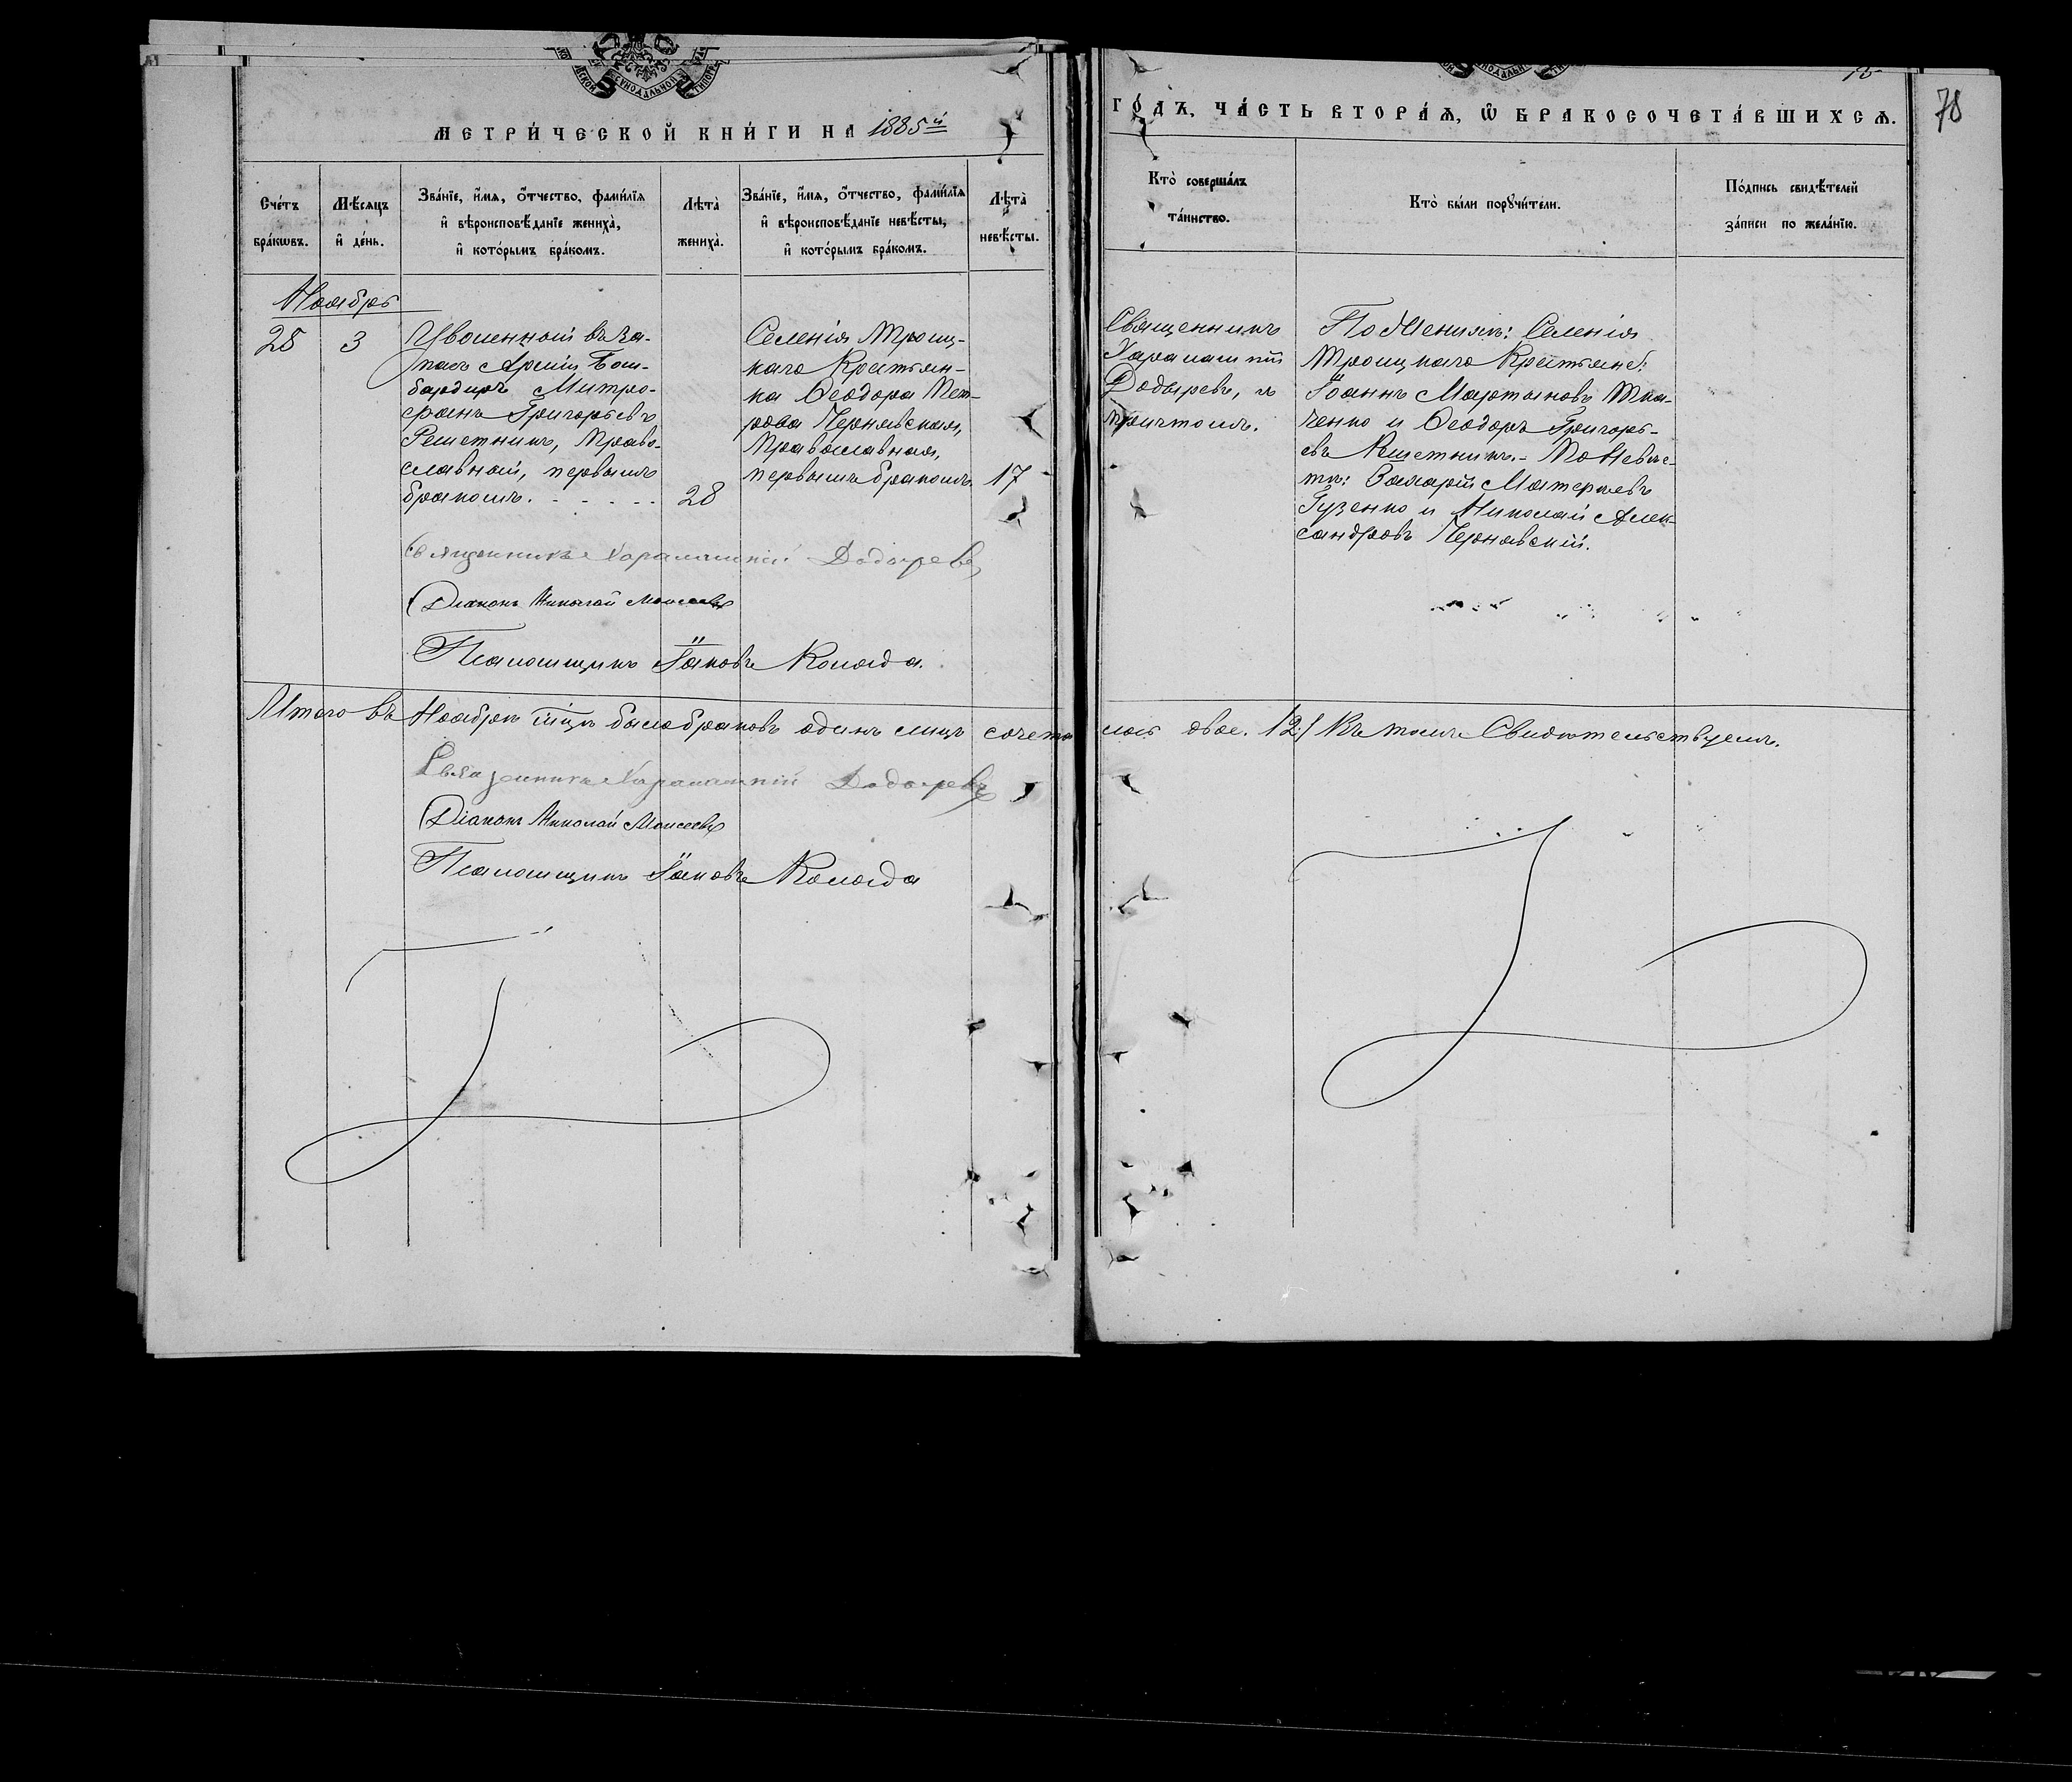 МЕТРИ́ЧЕСКОЙ КНИ́ГИ НА 1885й
ГО́ДЪ, ЧА́СТЬ ВТОРА́Ѧ, Ѽ БРАКОСОЧЕТА́ВШИХСѦ.
78
Сче́тъ бра́кѡвъ.
Мѣ́сяцъ и҆ де́нь.
Зва́нїе, и҆́мѧ, ѻ҆́тчество, фами́лїѧ
и҆ вѣроисповѣ́данїе жениха̀,
и҆ кото́рымъ бра́комъ.
Лѣта̀ жениха̀.
Зва́нїе, и҆́мѧ, ѻ҆́тчество, фами́лїѧ
и҆ вѣроисповѣ́данїе невѣ́сты,
и҆ кото́рымъ бра́комъ.
Лѣта̀ невѣ́сты.
Кто̀ соверша́лъ
та́инство.
Кто̀ бы́ли порꙋчи́тели.
По́дпись свидѣ́телей
за́писи по жела́нїю.
Ноябрь
28
3
Уволенный въ За-
пасъ Арміи Бом-
бардиръ Митро-
фанъ Григорьевъ
Решетникъ, Право-
славный, первымъ
бракомъ.
28
Селенія Троиц-
каго Крестьян-
ка Ѳеодора Пет-
рова Чернявская,
Православная,
первымъ бракомъ.
17
Священникъ
Харалампій
Додыревъ, съ
причтомъ.
По Женихѣ: Селенія
Троицкаго Крестьяне:
Іоаннъ Мартыновъ Тка-
ченко и Ѳеодоръ Григорь-
евъ Решетникъ. - По Невѣс-
тѣ: Захарій Матеѣевъ
Гузенко и Николай Алек-
сандровъ Чернявскій.
Священникъ Харалампій Додыревъ
Діаконъ Николай Моисеевъ
Псаломщикъ Іаковъ Коляда.
Итого въ Ноябрѣ мцѣ было браковъ одинъ лицъ сочета
лось двое. /2/ Въ томъ Свидѣтельствуемъ.
Священникъ Харалампій Додыревъ
Діаконъ Николай Моисеевъ
Псаломщикъ Іаковъ Коляда